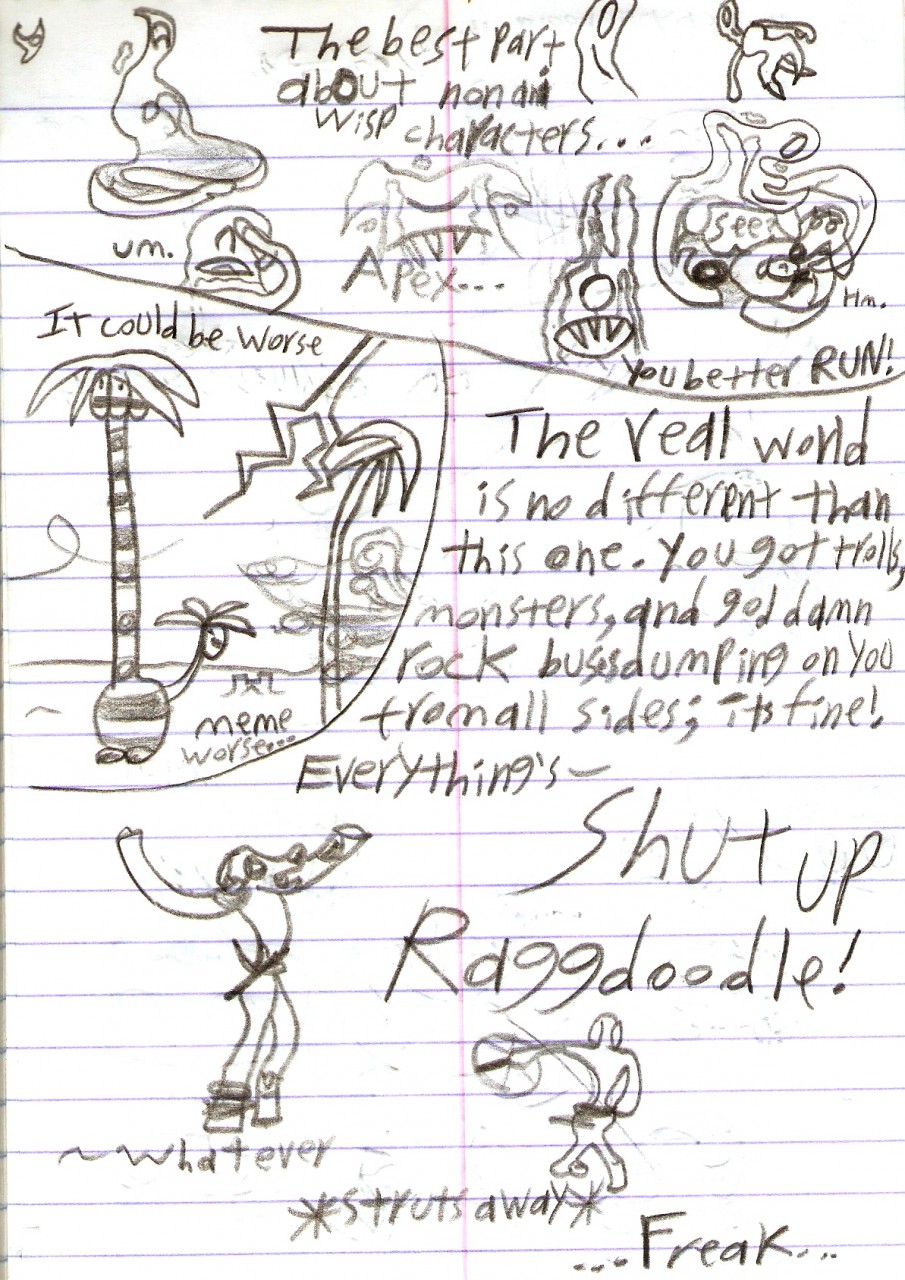 The best part
about non
wisp characters...
um.
Apex...
U see?
Hm.
You better RUN!
It could be worse
meme
worse...
The real world
is no different than
this one. You got trolls,
monsters, and god damn
rock dumping on you
from all sides; its fine!
Everything's~
Shut up
Raggdoodle!
~whatever
*struts away*
...Freak...